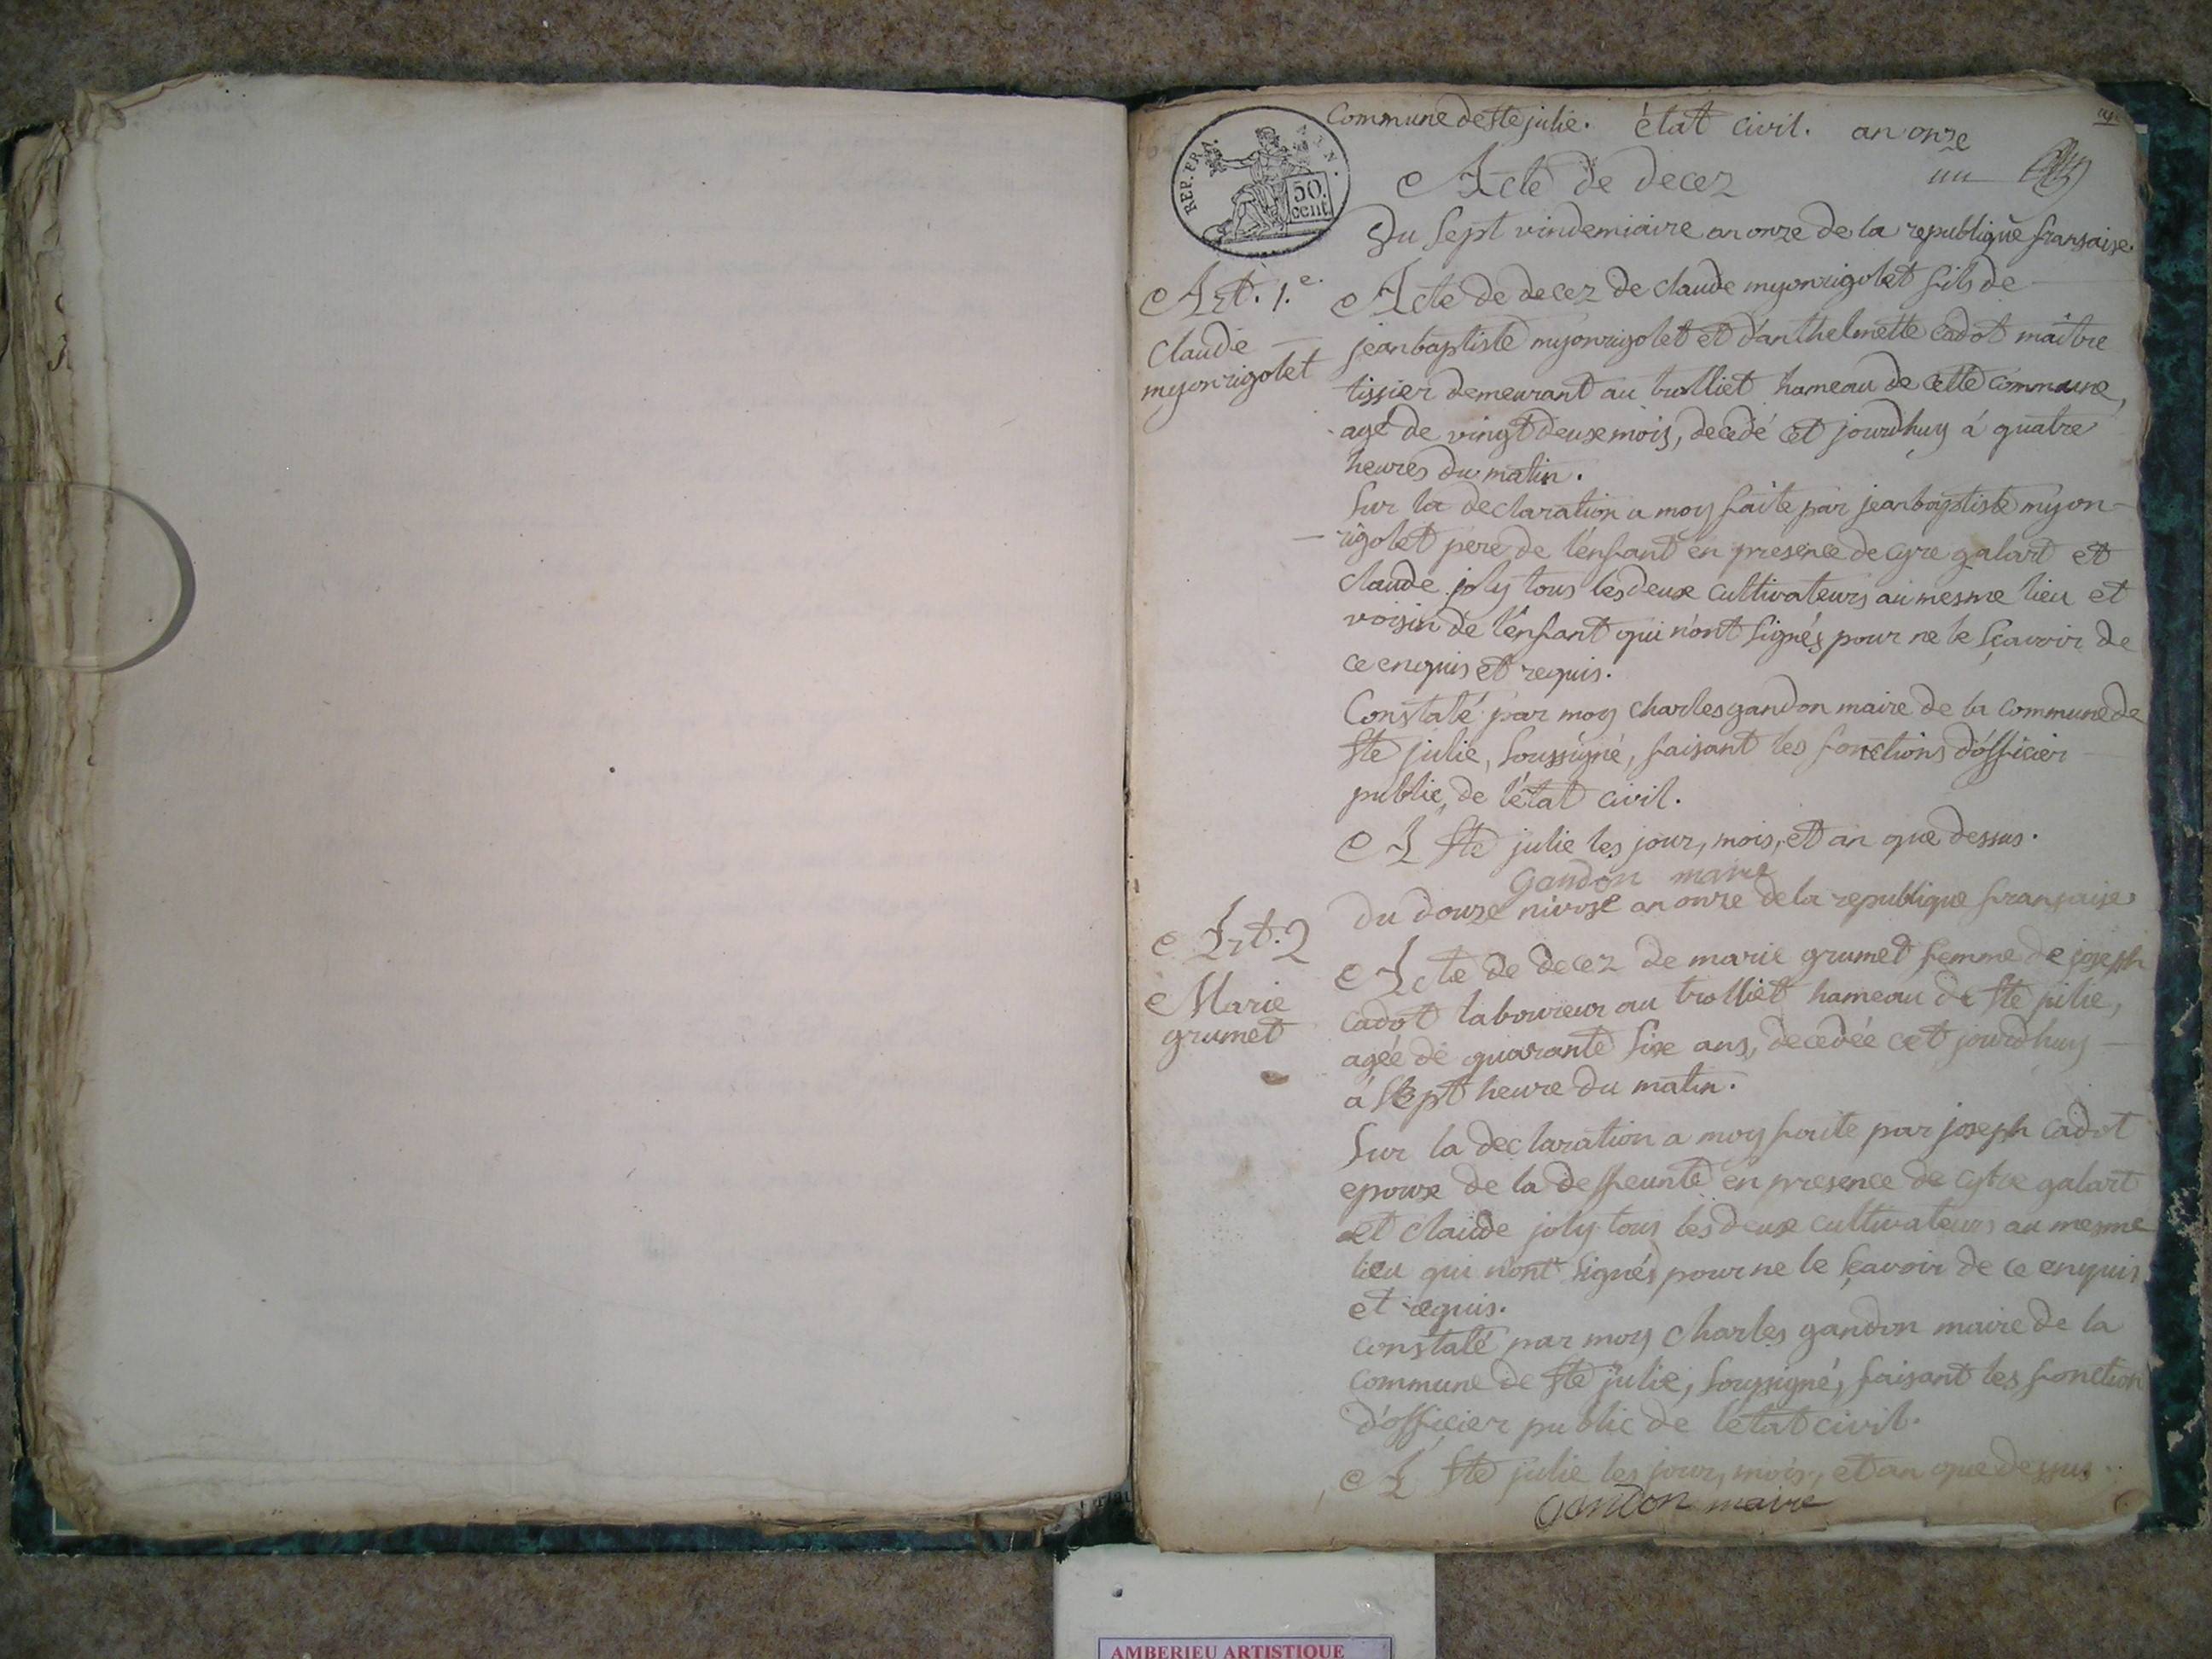 Commune de Ste julie. état civil. an onze
un
REP. FRA.
50.
cent.
Acte de decez
Du sept vindemiaire an onze de la republique fransaise.
Art. 1.e
Claude
myonrigolet
Acte de decez de claude myonrigolet fils de
jeanbaptiste myonrigolet et d'anthelmette cadot maître
tissier demeurant au trolliet hameau de cette commune,
agé de vingt deux mois, decedé cet jourdhuy à quatre
heures du matin.
Sur la declaration a moy faite par jeanbaptiste myon-
-rigolet pere de l'enfant en presence de cyre galart et
claude joly tous les deux cultivateurs au mesme lieu et
voisin de l'enfant qui n'ont signés pour ne le sçavoir de
ce enquis et requis.
Constaté par moy charles gandon maire de la commune de
Ste julie, soussigné, faisant les fonctions d'officier
public, de l'état civil.
A Ste julie les jour, mois, et an que dessus.
Gandon maire
Art. 2
Marie
grumet
du douze nivose an onze de la republique fransaise
Acte de decez de marie grumet femme de joseph
cadot laboureur au trolliet hameau de Ste julie,
agée de quarante six ans, decedée cet jourdhuy
à sept heure du matin.
Sur la declaration a moy faite par joseph cadot
epoux de la deffeunte en presence de galart
et claude joly tous les deux cultivateurs au mesme
lieu qui n'ont signés pour ne le sçavoir de ce enquis
et requis.
constaté par moy Charles gandon maire de la
commune de Ste julie, soussigné, faisant les fonction
d'officier public de l'état civil.
A Ste julie les jour, mois, et an que dessus.
Gandon maire
AMBERIEU ARTISTIQUE